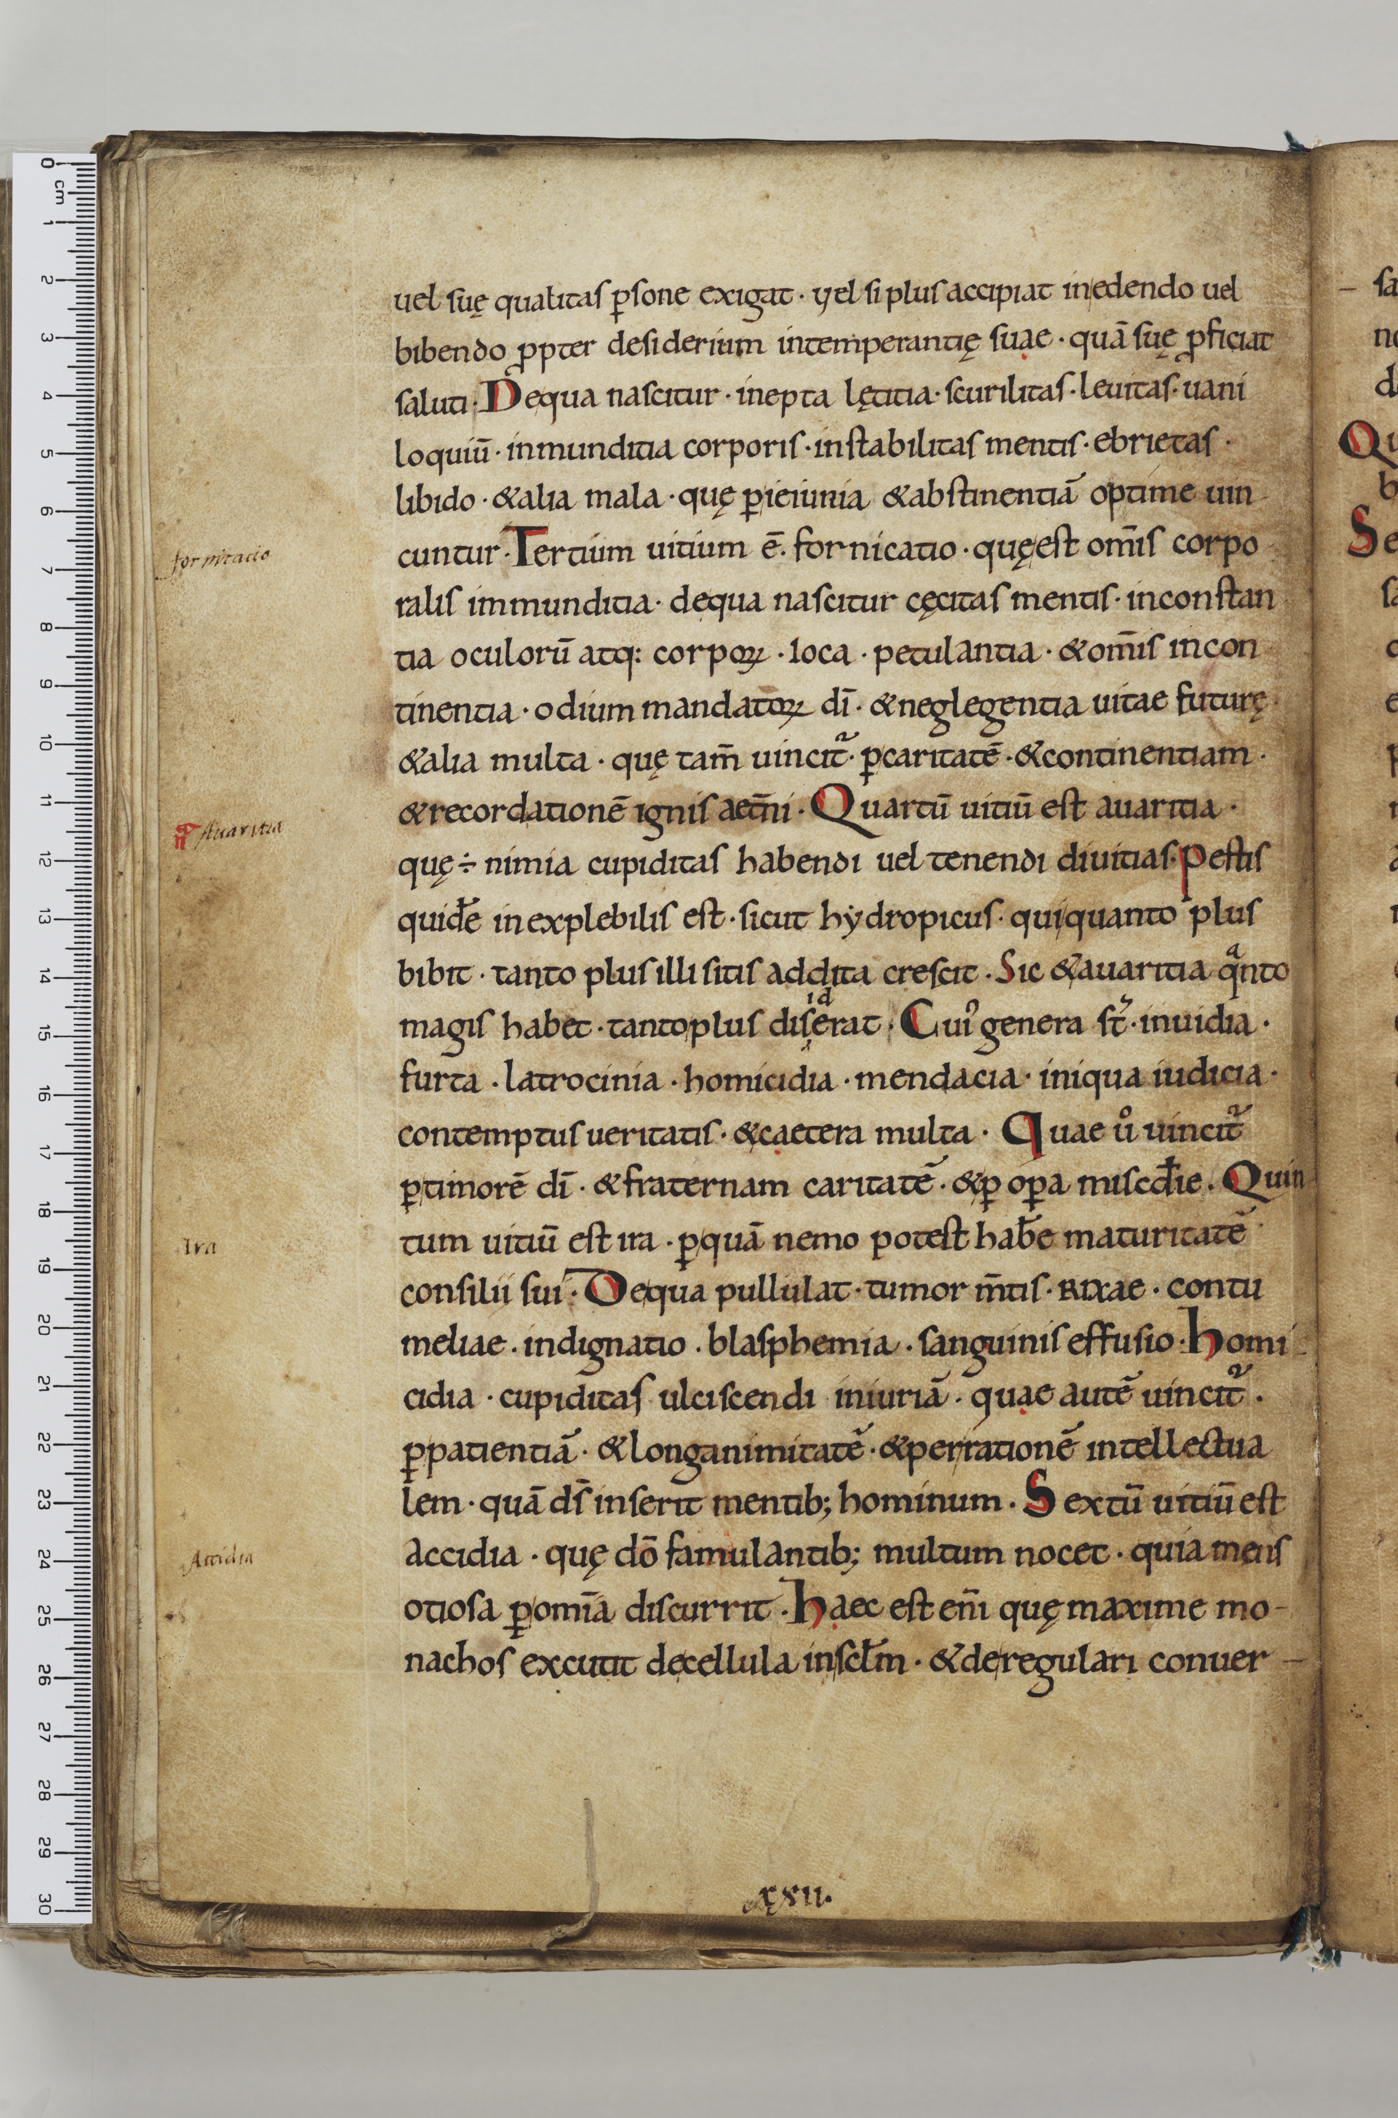 uel suę qualitas p̱sone exigat · uel si plus accipiat in edendo uel
bibendo ꝓpter desiderium intemperantię suae · quā suę ꝓficiat
saluti · De qua nascitur · inepta lętitia · scurilitas · leuitas · uani
loquiū · inmunditia corporis · instabilitas mentis · ebrietas ·
libido · & alia mala · quę ꝑ ieiunia & abstinentiā optime uin
fornicacio
cuntur · Tertium uitium ē · fornicatio · quę est om̄is corpo
ralis immunditia · de qua nascitur cęcitas mentis · inconstan
tia oculorū atq: corpoꝝ · ioca · petulantia · & om̄is incon
tinentia · odium mandatoꝝ dī · & neglegentia uitae futurę ·
& alia multa · quę tam̄ uincit᷑ · ꝑ caritatē · & continentiam ·
& recordationē ignis aet̄ni · Quartū uitiū est auaritia ·
Auaritia
quę ÷ nimia cupiditas habendi uel tenendi diuitias · Pestis
quidē inexplebilis est · sicut hẏdropicus · qui quanto plus
bibit · tanto plus illi sitis addita crescit · Sic & auaritia qᵃnto
magis habet · tanto plus disęrat · Cui᾽ genera st᷑ · inuidia ·
furta · latrocinia · homicidia · mendacia · iniqua iudicia ·
contemptus ueritatis · & caetera multa · Quae uͦ uincit᷑
ꝑ timorē dī · & fraternam caritatē · & ꝑ oꝑa miscđie · Quin
Ira
tum uitiū est ira · ꝑ quā nemo potest hab̄e maturitatē
consilii sui · De qua pullulat · tumor m̄tis · rixae · contu
meliae · indignatio · blasphemia · sanguinis effusio · homi
cidia · cupiditas ulciscendi iniuriā · quae autē uincit᷑ ·
ꝑ patientiā · & longanimitatē · & per rationē intellectua
lem · quā ds̄ inserit mentib; hominum · Sextū uitiū est
Accidia
accidia · quę dō famulantib; multum nocet · quia mens
otiosa ꝑ om̄ia discurrit · haec est en̄i quę maxime mo-
nachos excutit de cellula in scł̄m · & de regulari conuer-
xxii.